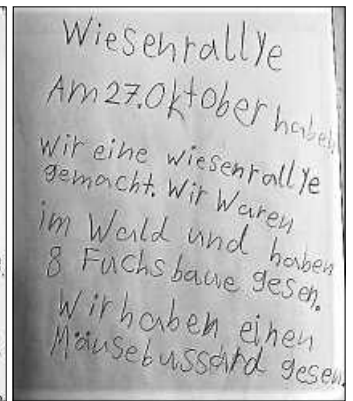 Wiesenrallye
Am 27. Oktober haben
wir eine wiesenrallye
gemacht. Wir waren
im Wald und haben
8 Fuchsbaue gesen.
Wir haben einen
Mäusebussard gesen.